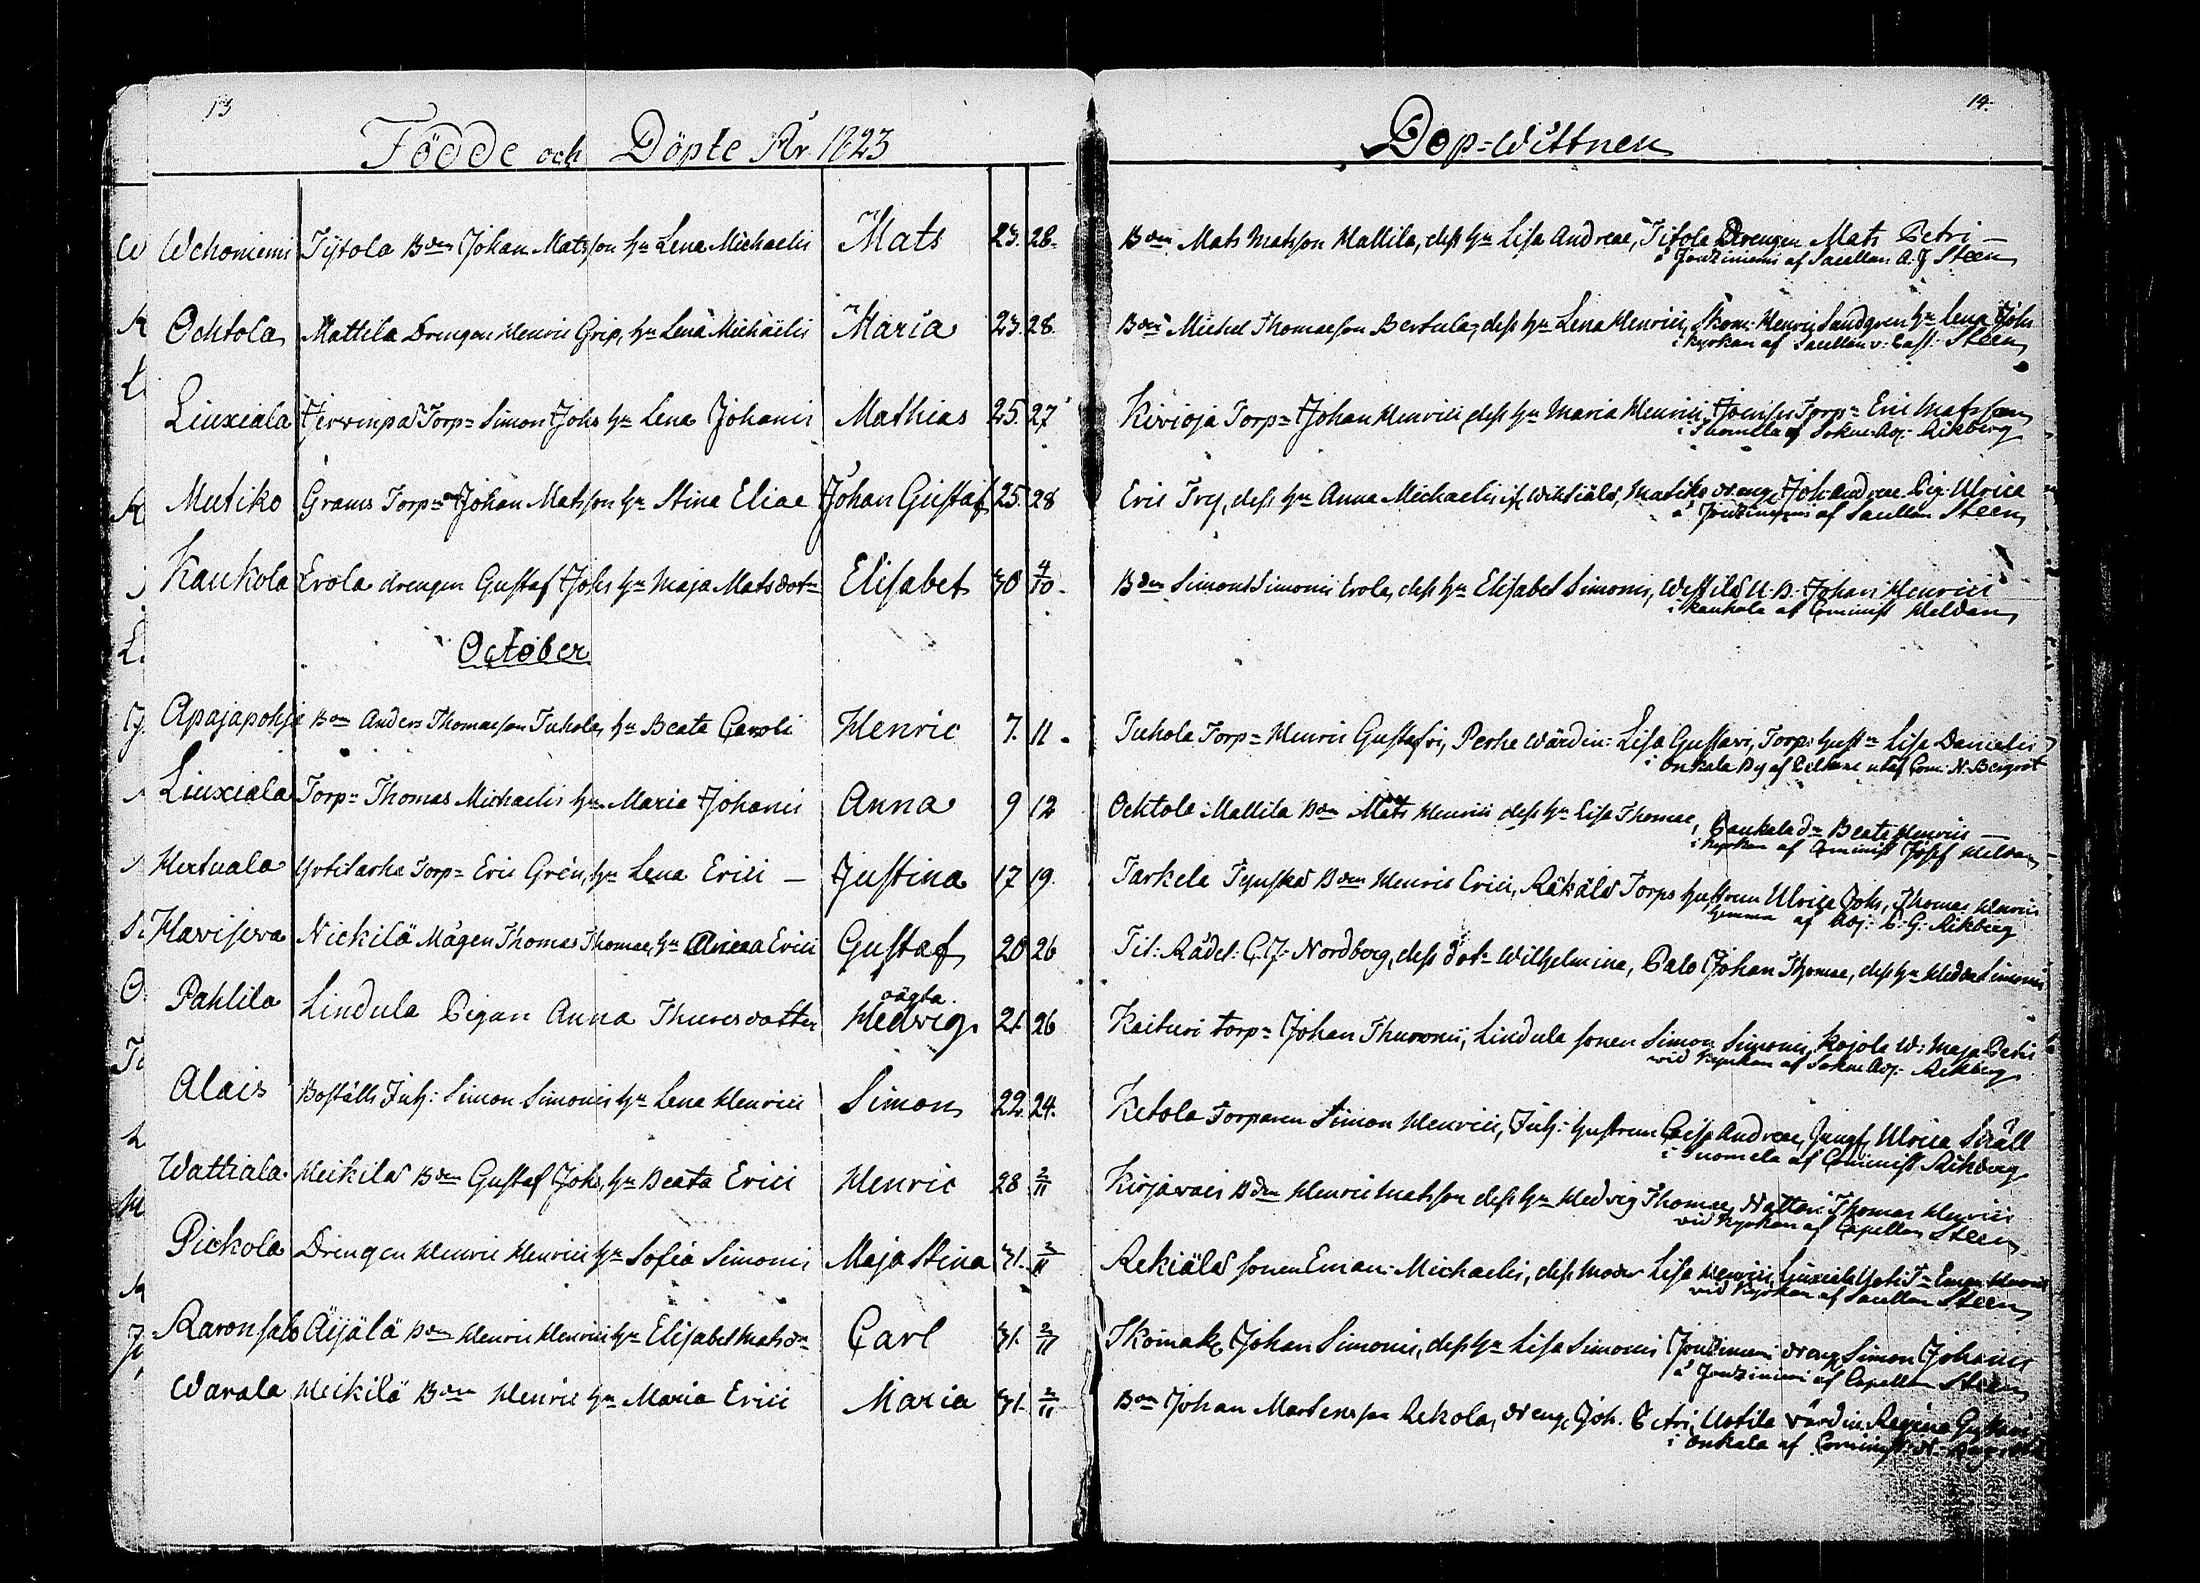 13
Födde och Döpte År 1823
Wehoniemi Tÿtola Bdn Johan Matsson hu Lena Michaelis Mats 23. 28.
Ochtola Mattila Drengen Henric Grip, hu Lena Michaelis Maria 23. 28.
Liuxiala Torp= Simon Johs hu Lena Johanis Mathias 25. 27
Mutiko Grams Torp= Johan Matsson hu Stina Eliae Johan Gustaf 25. 28
Kaukola Erola drengen Gustaf Johs hu Maja Matsdotr Elisabet 30 4/10.
October
Apajapohja Bdn Anders Thomasson Tuhola, hu Beata Caroli Henric 7. 11.
Liuxiala Torp= Thomas Michaelis hu Maria Johanis Anna 9 12
Hertuala Torp= Eric Grén, hu Lena Erici — Justina 17 19.
Haviseva Nickilä Mågen Thomas Thomae, hu Erici Gustaf 20 26
Pahlila Lindula Pigan Anna Thuresdotter oägta. Hedvig 21. 26
Alais Boställs Inh: Simon Simonis hu Lena Henrici Simon 22. 24.
Wattiala Heikilä Bdn Gustaf Johs, hu Beata Erici Henric 28 2/11
Pickola Drengen Henric Henrici hu Sofia Simonis Maja Stina 31. 2/11
Raronsalo Äijälä Bdn Henric Henrici hu Elisabet Matsdr Carl 31. 2/11
Warala Heikilä Bdn Henric hu Maria Erici Maria 31. 2/11
14.
Dop=Wittnen
Bdn Mats Matsson Mallila, dess hu Lisa Andreae, Titola Drengen Mats Petri —
å Jouziniemi af Sacellan A. J Steen
Bdn Michel Thomasson Bertula, dess hu Lena Henrici, Skom: Henric Sandgren hu Lena Joh
i kyrkan af Sacellan v. Past: Steen
Kirioja Torp= Johan Henrici dess hu Maria Henrici, Torp= Eric Matsson
i af Sokne Adj: Rikberg
Eric Fry, dess hu Anna Michaelis if Wiksiälä, Mutiko dreng Joh: Andreae Pig: Ulrica
å Jouziniemi af Sacellan Steen
Bdn Simon Simonis Erola, dess hu Elisabet Simonis, Johan Henrici
i Kaukola af Cominist Heldan
Tuhola Torp= Henric Gustafri, Perhe Wärdin: Lisa Gustavi, Torp: hust= Lisa Danielis
i Onkala By af Com: N. Bergrot
Ochtola Mallila Bdn Mats Henrici dess hu Lisa Thomae, dr Beata Henrici —
i Kyrkan af Cominist Heldan
Tarkela Bdn Henric Erici, Räkälä Torps hustrun Ulrica Johs, Thomas Henrici
hemma af Adj: C: G: Rikberg
Tit: Rådet: C: J: Nordberg, dess dotr Wilhelmina, Palo Johan Thomae, dess hu Hedda Simonis
Kaituri torp= Johan Lindula sonen Simon Simonis, Kojola W: Maja Petri
wid kyrkan af Sokne Adj: Rikberg
Ketola Torparen Simon Henrici, Inh: hustrun Caisa Andreae, Jungf Ulrica
i Suomela af Cominist Rikberg
Kirjavais Bdn Henric Matsson dess hu Hedvig Thomae, Nattari Thomas Henrici
vid Kyrkan af Capellan Steen.
Rekiälä sonen Eman: Michaelis, dess moder Lisa Henrici, Liuxiala
vid Kyrkan af Sacellan Steen
Skomak Johan Simonis, dess hu Lisa Simonis Jouziniemi dreng Simon Johanis
å Jouziniemi af Capellan Steen
Bdn Johan Mårtensson Rekola, dreng Joh. Petri, Uotila värdin: Regina
i Onkala af Cominist: N.